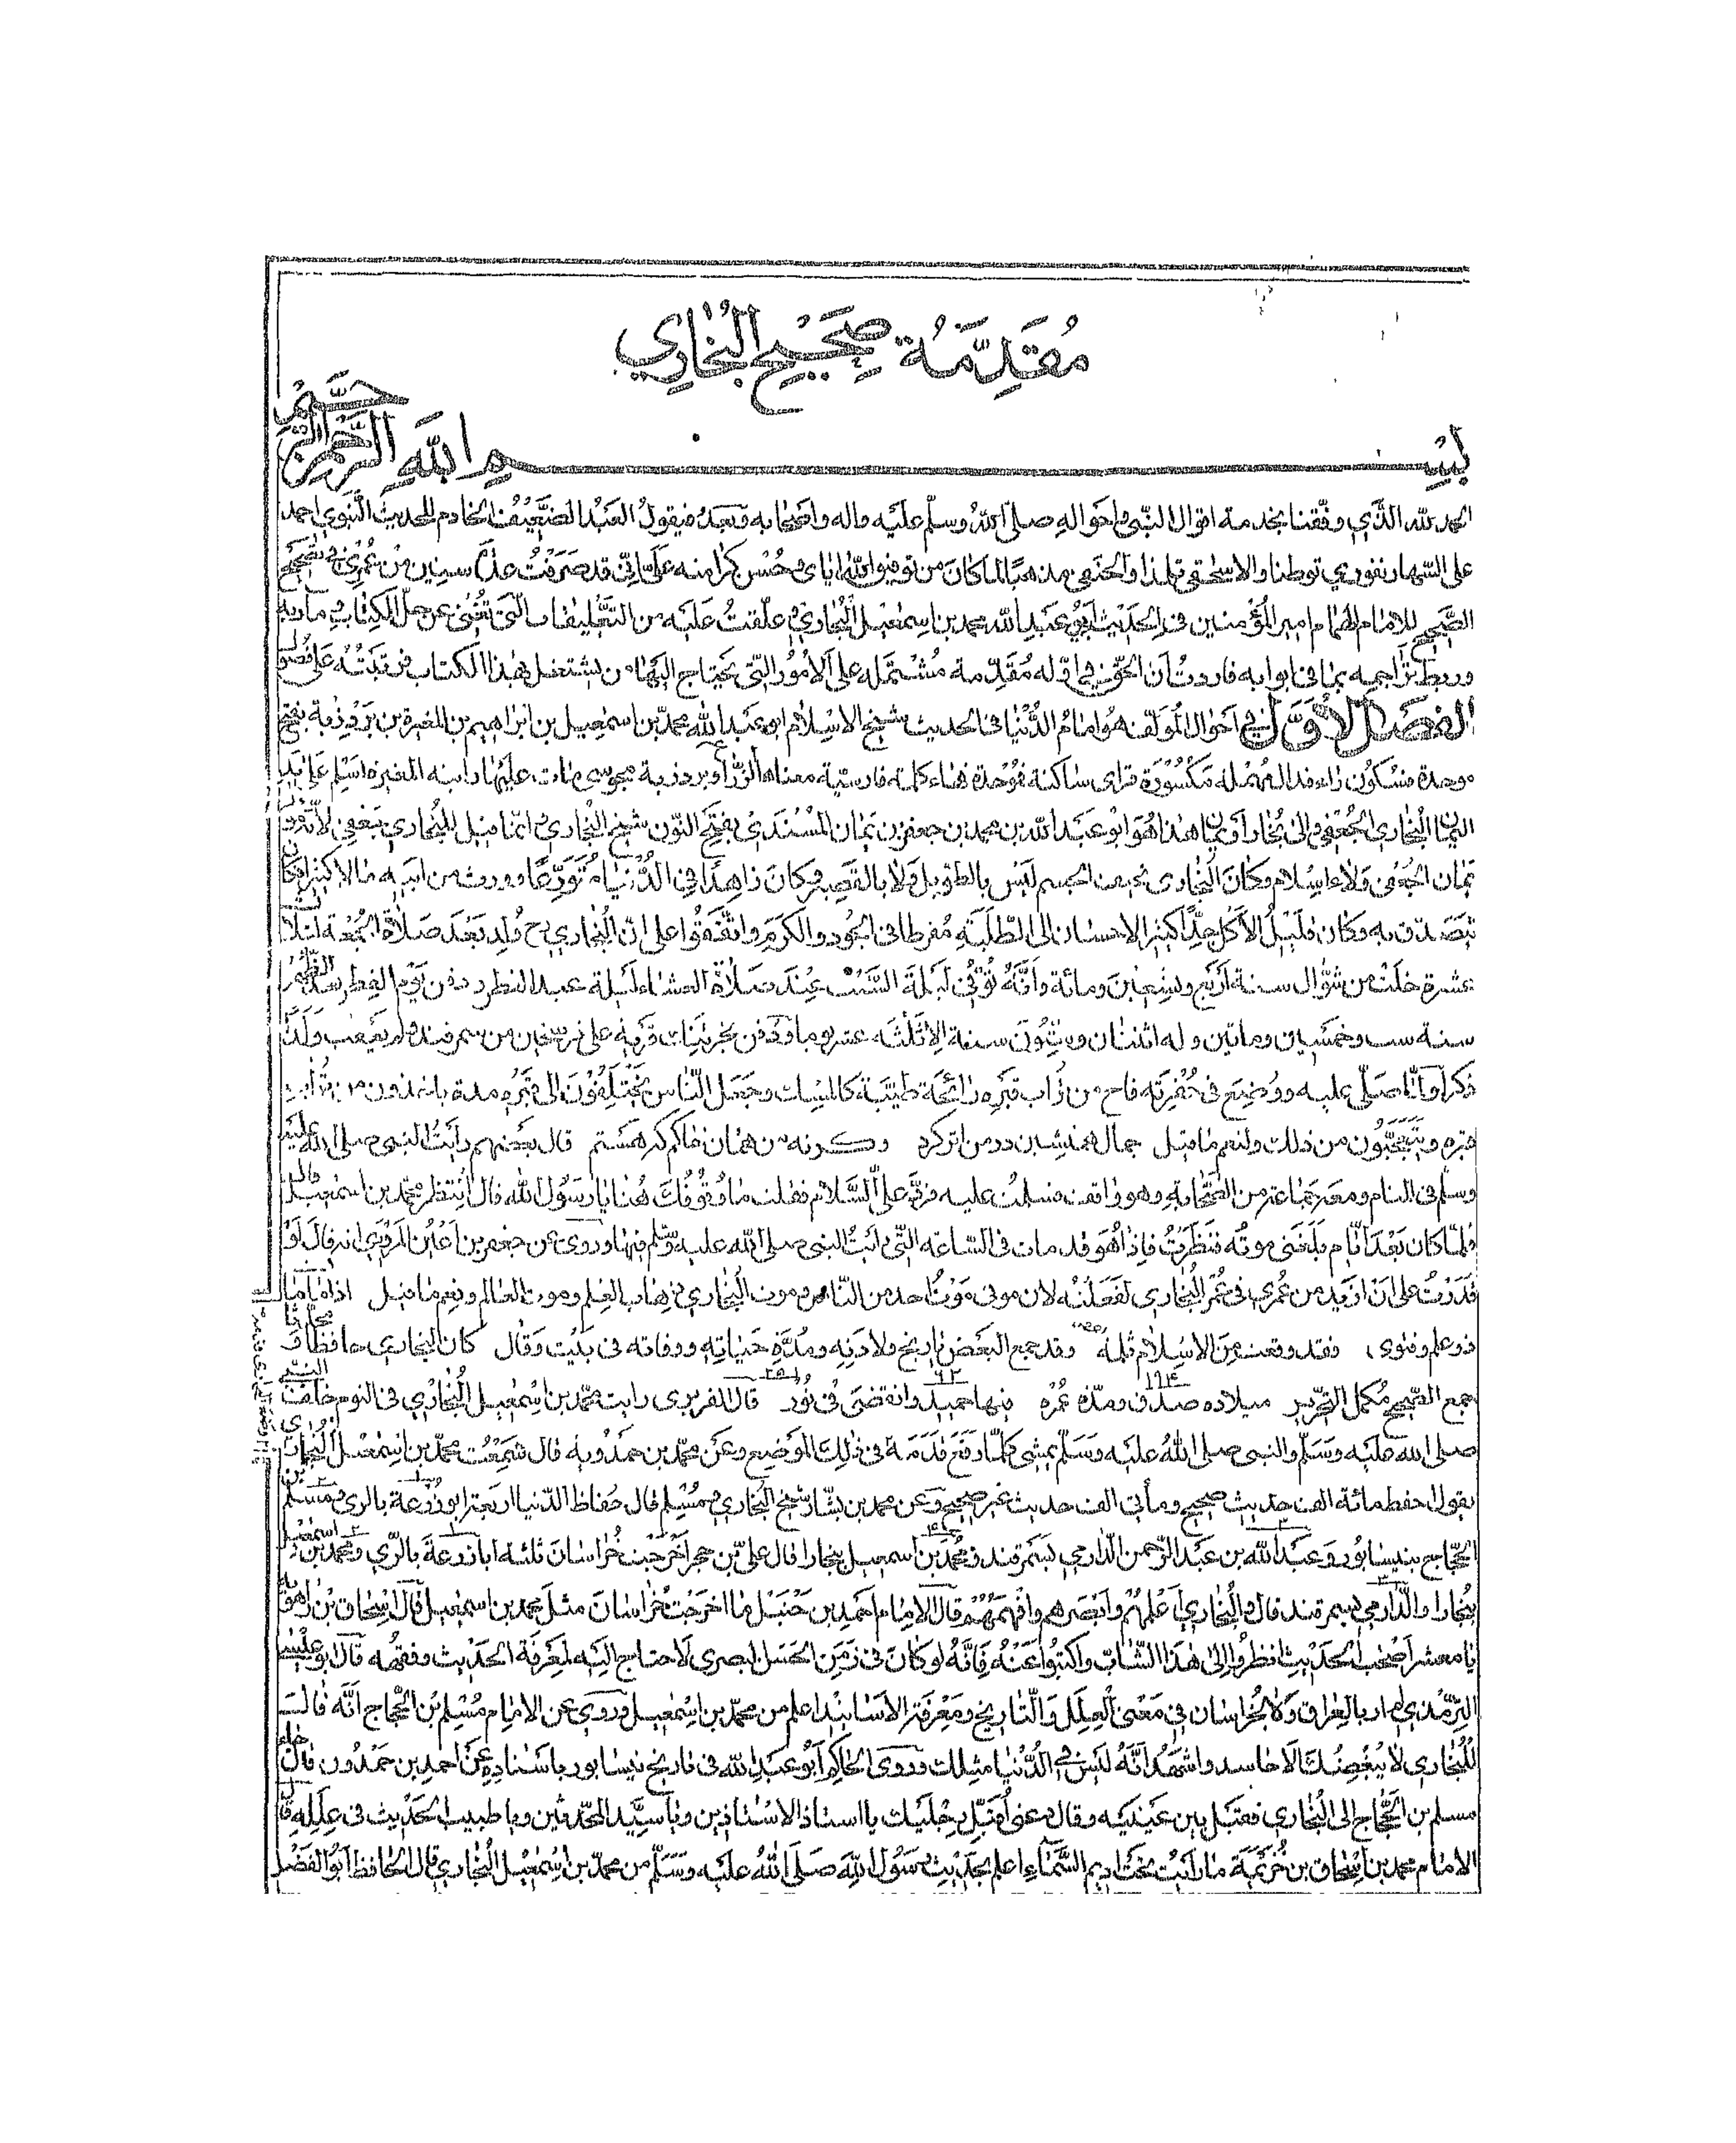 مُقَدِّمَةُ صَحِيْحِ الْبُخَارِي
بِسْمِ اللهِ الرَّحْمٰنِ الرَّحِيْمِ
الحمد لله الذي وفقنا بخدمة اقوال النبي واحواله صلى الله وسلم عليه واله واصحابه وبعد فيقول العبد الضعيف الخادم للحديث النبوي احمد
على السهارنفوري توطنا والاسحقي تلمذا والحنفي مذهبا لما كان من توفيق الله اياى وحسن كرامته على انى قد صرفت عدة سنين من عمرى في تصحيح
الصحيح للامام الهمام امير المؤمنين فى الحديث ابى عبد الله محمد بن اسمعيل البخاري وعلقت عليه من التعليقات التى تغنى عن حل الكتاب وماربه
وربط تراجمه بما فى ابوابه فاردت ان الحق فى اوله مقدمة مشتملة على الامور التى يحتاج اليها من يشتغل بهذا الكتاب فرتبته على فصول
الفصل الاول في احوال المؤلف هو امام الدنيا فى الحديث شيخ الاسلام ابو عبد الله محمد بن اسمعيل بن ابراهيم بن المغيرة بن بردزبة بفتح
موحدة فسكون راء فدال مهملة مكسورة فزاى ساكنة فموحدة فهاء كلمة فارسية معناها الزراع وبردزبة مجوسى مات عليها وابنه المغيرة اسلم على يد
اليمان البخاري الجعفي والى بخارا ويمان هذا هو ابو عبد الله بن محمد بن جعفر بن يمان المسندى بفتح النون شيخ البخاري وانما قيل للبخاري جعفي لانه مولى
يمان الجعفى ولاء اسلام وكان البخارى نحيف الجسم ليس بالطويل ولا بالقصير وكان زاهدا فى الدنيا متورعا وورث من ابيه مالا كثيرا فكان
يتصدق به وكان قليل الاكل جدا كثير الاحسان الى الطلبة مفرطا فى الجود والكرم واتفقوا على ان البخاري رح ولد بعد صلاة الجمعة لثلاث
عشرة خلت من شوال سنة اربع وتسعين ومائة وانه توفى ليلة السبت عند صلاة العشاء ليلة عيد الفطر ودفن يوم الفطر بعد الظهر
سنة ست وخمسين ومأتين وله اثنتان وستون سنة الا ثلثة عشر يوما ودفن بخرتنك قرية على فرسخين من سمرقند ولم يعقب ولدا
ذكرا ولما صلى عليه ووضع فى حفرته فاح من تراب قبره رائحة طيبة كالمسك وجعل الناس يختلفون الى قبره مدة ياخذون من تراب
قبره ويتعجبون من ذلك ولنعم ما قيل جمال همنشين در من اثر كرد وكرنه من همان خاكم كه هستم قال بعضهم رأيت النبى صلى الله عليه
وسلم فى المنام ومعه جماعة من الصحابة وهو واقف فسلمت عليه فرد على السلام فقلت ما وقوفك هنا يا رسول الله قال انتظر محمد بن اسمعيل قال
فلما كان بعد ايام بلغنى موته فنظرت فاذا هو قد مات فى الساعة التى رايت النبى صلى الله عليه وسلم فيها وروى عن جعفر بن اعين المروزي انه قال لو
قدرت على ان ازيد من عمرى فى عمر البخاري لفعلت لان موتى موت احد من الناس وموت البخاري ذهاب العلم وموت العالم ونعم ما قيل اذا ما مات
ذو علم وفتوى فقد وقعت من الاسلام ثلمة وقد جمع البعض تاريخ ولادته ومدة حياته ووفاته فى بيت وقال كان البخاري حافظا ومحدثا
جمع الصحيح مكمل التحرير ميلاده صدق ومدة عمره فيها حميد وانقضى فى نور قال الفربرى رايت محمد بن اسمعيل البخاري فى النوم خلف النبى
۱۹۴ ۶۲ ۲۵۶
صلى الله عليه وسلم والنبى صلى الله عليه وسلم يمشى كلما رفع قدمه وضع قدمه فى ذلك الموضع وعن محمد بن حمدويه قال سمعت محمد بن اسمعيل البخاري
يقول احفظ مائة الف حديث صحيح ومأتى الف حديث غير صحيح وعن محمد بن بشار شيخ البخاري ومسلم قال حفاظ الدنيا اربعة ابو زرعة بالرى ومسلم بن
الحجاج بنيسابور وعبد الله بن عبد الرحمن الدارمي بسمرقند ومحمد بن اسمعيل ببخارا قال على بن حجر اخرجت خراسان ثلثة ابا زرعة بالري ومحمد بن اسمعيل
ببخارا والدارمي بسمرقند قال والبخاري اعلمهم وابصرهم وافهمهم وقال الامام احمد بن حنبل ما اخرجت خراسان مثل محمد بن اسمعيل قال اسحاق بن راهويه
يا معشر اصحاب الحديث انظروا الى هذا الشاب واكتبوا عنه فانه لو كان فى زمن الحسن البصرى لاحتاج اليه لمعرفة الحديث وفقهه قال ابو عيسى
الترمذي لم ار بالعراق ولا بخراسان فى معنى العلل والتاريخ ومعرفة الاسانيد اعلم من محمد بن اسمعيل وروى عن الامام مسلم بن الحجاج انه قال
للبخاري لا يبغضك الا حاسد واشهد انه ليس فى الدنيا مثلك وروى الحاكم ابو عبد الله فى تاريخ نيسابور باسناده عن احمد بن حمدون قال جاء
مسلم بن الحجاج الى البخاري فقبل بين عينيه وقال دعنى اقبل رجليك يا استاذ الاستاذين ويا سيد المحدثين ويا طبيب الحديث فى علله قال
الامام محمد بن اسحاق بن خزيمة ما رايت تحت اديم السماء اعلم بحديث رسول الله صلى الله عليه وسلم من محمد بن اسمعيل البخاري قال الحافظ ابو الفضل